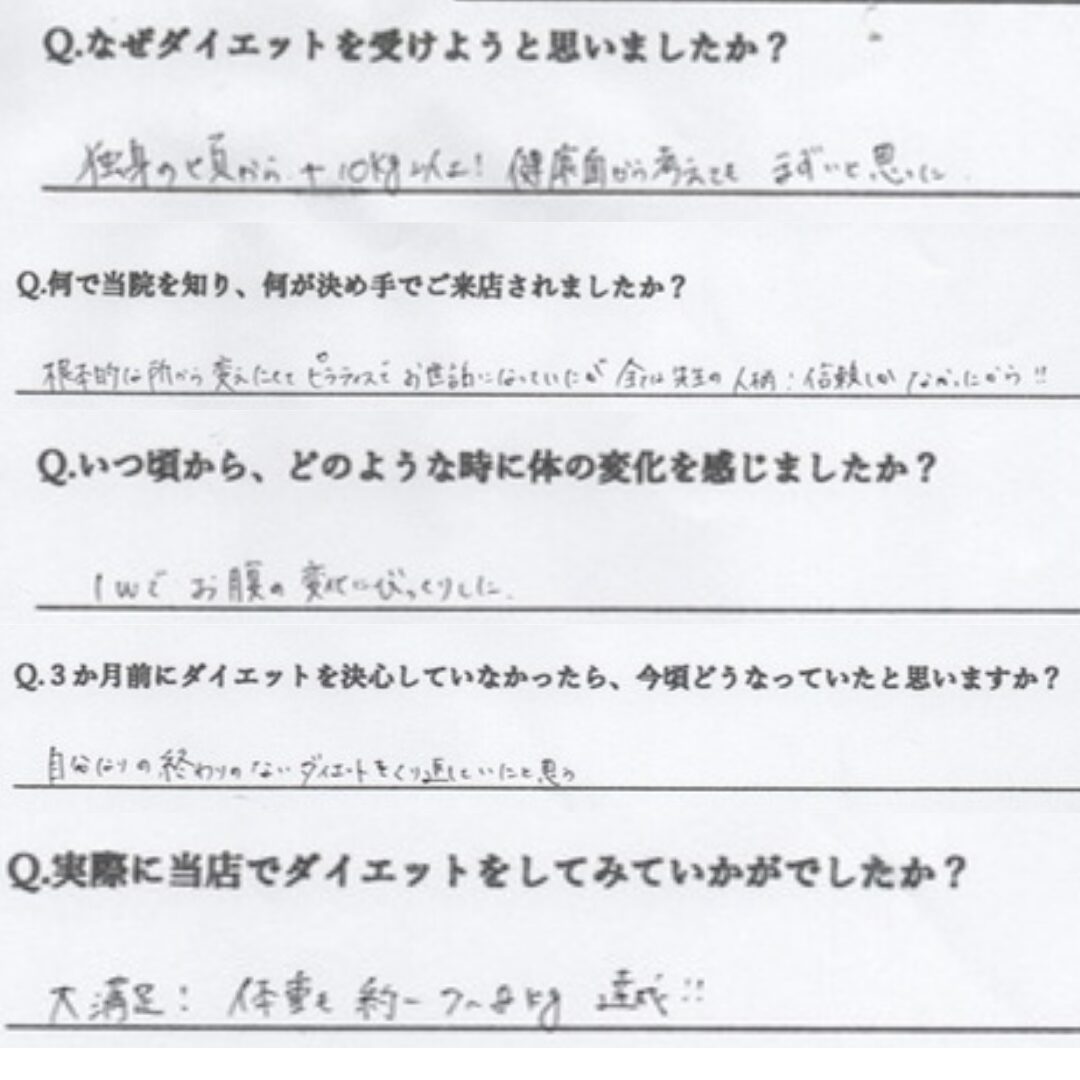 Q.なぜダイエットを受けようと思いましたか？
独身の頃から +10kg以上! 健康面から考えても まずいと思った.
Q.何で当院を知り、何が決め手でご来店されましたか？
根本的な所から変えたくて ピラティスで お世話になっていたが 全ては先生の人柄:信頼しか なかったから!!
Q.いつ頃から、どのような時に体の変化を感じましたか？
1wで お腹の 変化にびっくりした.
Q.３か月前にダイエットを決心していなかったら、今頃どうなっていたと思いますか？
自分なりの終わりのないダイエットをくり返していたと思う
Q.実際に当店でダイエットをしてみていかがでしたか？
大満足! 体重も 約-7~8kg 達成!!